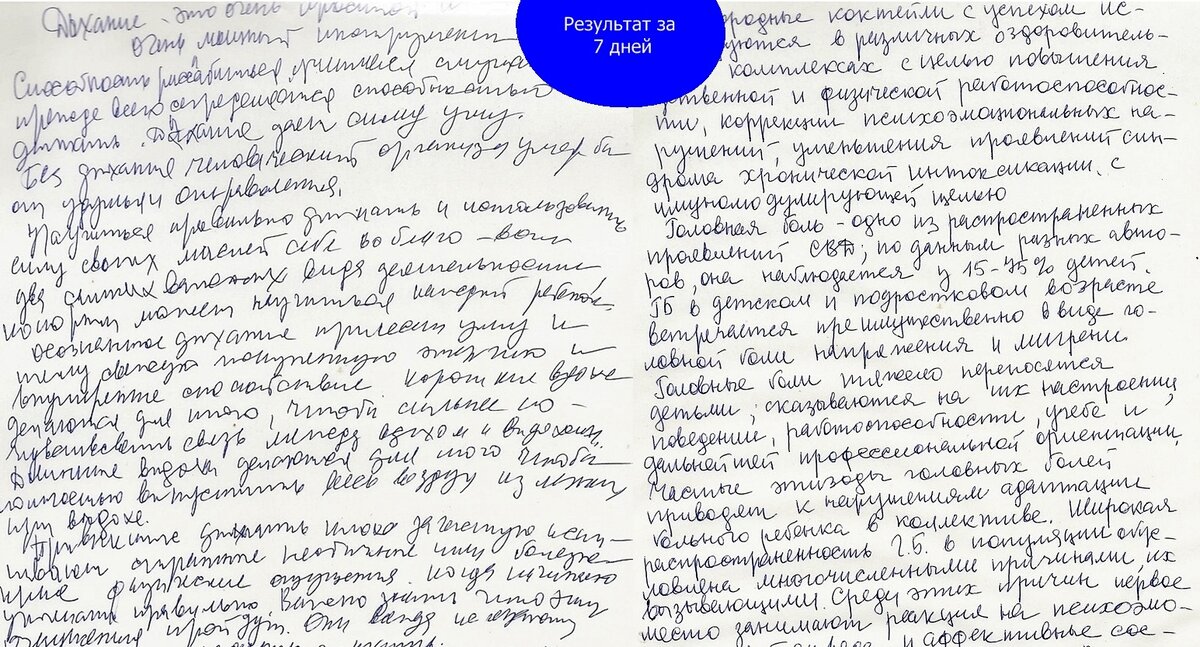 Результат за
7 дней
Дыхание - это очень простой и
очень мощный инструмент
Способность расслабиться, учишься слушать
прежде всего определяется способностью
дышать. Дыхание дает силу уму.
Без дыхания человеческий организм умер бы
от удушья и отравления.
Научиться правильно дышать и использовать
силу своих мыслей себе во благо - вот
два самых важных вида деятельности
которым может научиться каждый ребенок.
осознанное дыхание принесет уму и
телу свежую жизненную энергию и
внутреннее спокойствие. Короткие вдохи
делаются для того, чтобы сильнее по-
чувствовать связь между вдохом и выдохом.
Длинные выдохи делаются для того чтобы
полностью выпустить весь воздух из легких
при выдохе.
Привыкшие дышать плохо зачастую испы-
тывают странные необычные или болезне
нные физические ощущения, когда начинают
дышать правильно. Важно знать что эти
ощущения пройдут. Они всегда
родные коктейли с успехом ис-
уются в различных оздоровитель-
комплексах с целью повышения
ственной и физической работоспособнос-
ти, коррекции психоэмациональных на-
рушений, уменьшения проявлений син-
дрома хронической интоксикации, с
имуномодулирующей целью
Головная боль - одно из распространенных
проявлений СВД; по данным разных авто-
ров, она наблюдается у 15-75% детей.
ГБ в детском и подростковом возрасте
встречается преимущественно в виде го-
ловной боли напряжения и мигрени
Головные боли тяжело переносятся
детьми, сказываются на их настроении,
поведении, работоспособности, учебе и
дальнейшей профессиональной ориентации,
Частые эпизоды головных болей
приводят к нарушениям адаптации
больного ребенка в коллективе. Широкая
распространенность Г.Б. в популяции обус-
ловлена многочисленными причинами, их
вызывающими. Среди этих причин первое
место занимают реакция на психоэмо-
и аффективные сос-